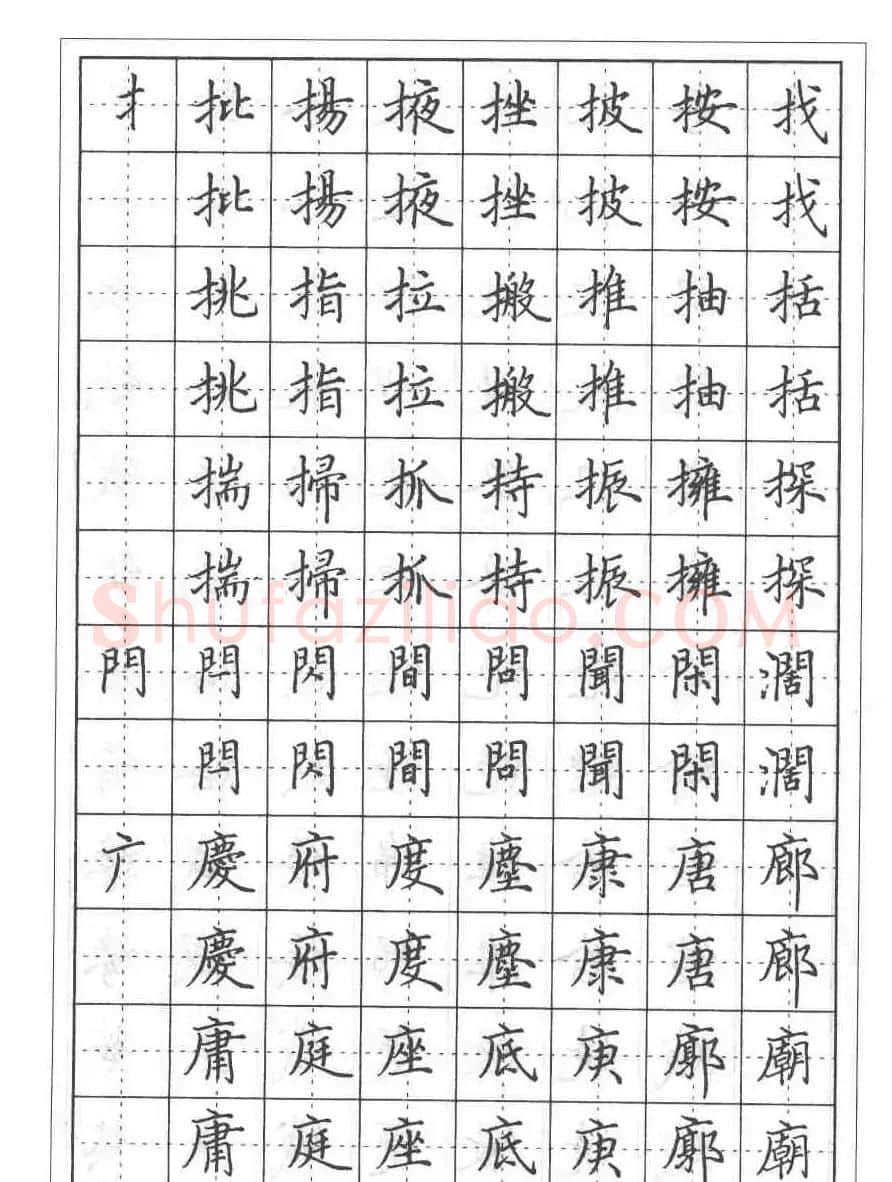 扌批揚掖挫披按找
批揚掖挫披按找
挑指拉搬推抽括
挑指拉搬推抽括
揣掃抓持振擁探
揣掃抓持振擁探
門閂閃間問聞閑濶
閂閃間問聞閑濶
广慶府度塵康唐廊
慶府度塵康唐廊
庸庭座底庚廓廟
庸庭座底庚廓廟
Shufaziliao.COM